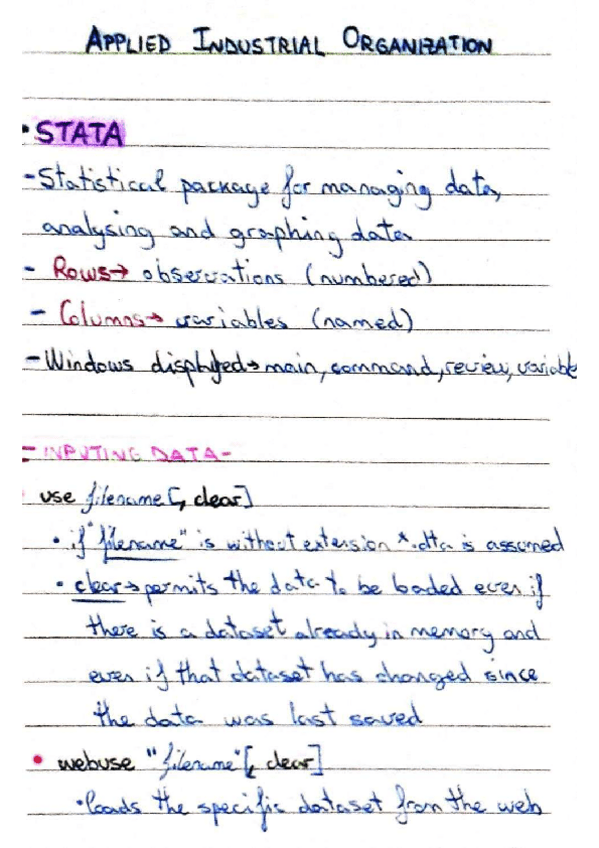 APPLIED INDUSTRIAL ORGANIZATION
• STATA
- Statistical package for managing data,
analysing and graphing data
- Rows → observations (numbered)
- Columns → variables (named)
- Windows displayed → main, command, review, variable
- INPUTING DATA -
use filename [, clear]
• if "filename" is without extension *.dta is assumed
• clear → permits the data to be loaded even if
there is a dataset already in memory and
even if that dataset has changed since
the data was last saved
• webuse "filename" [, clear]
• loads the specific dataset from the web